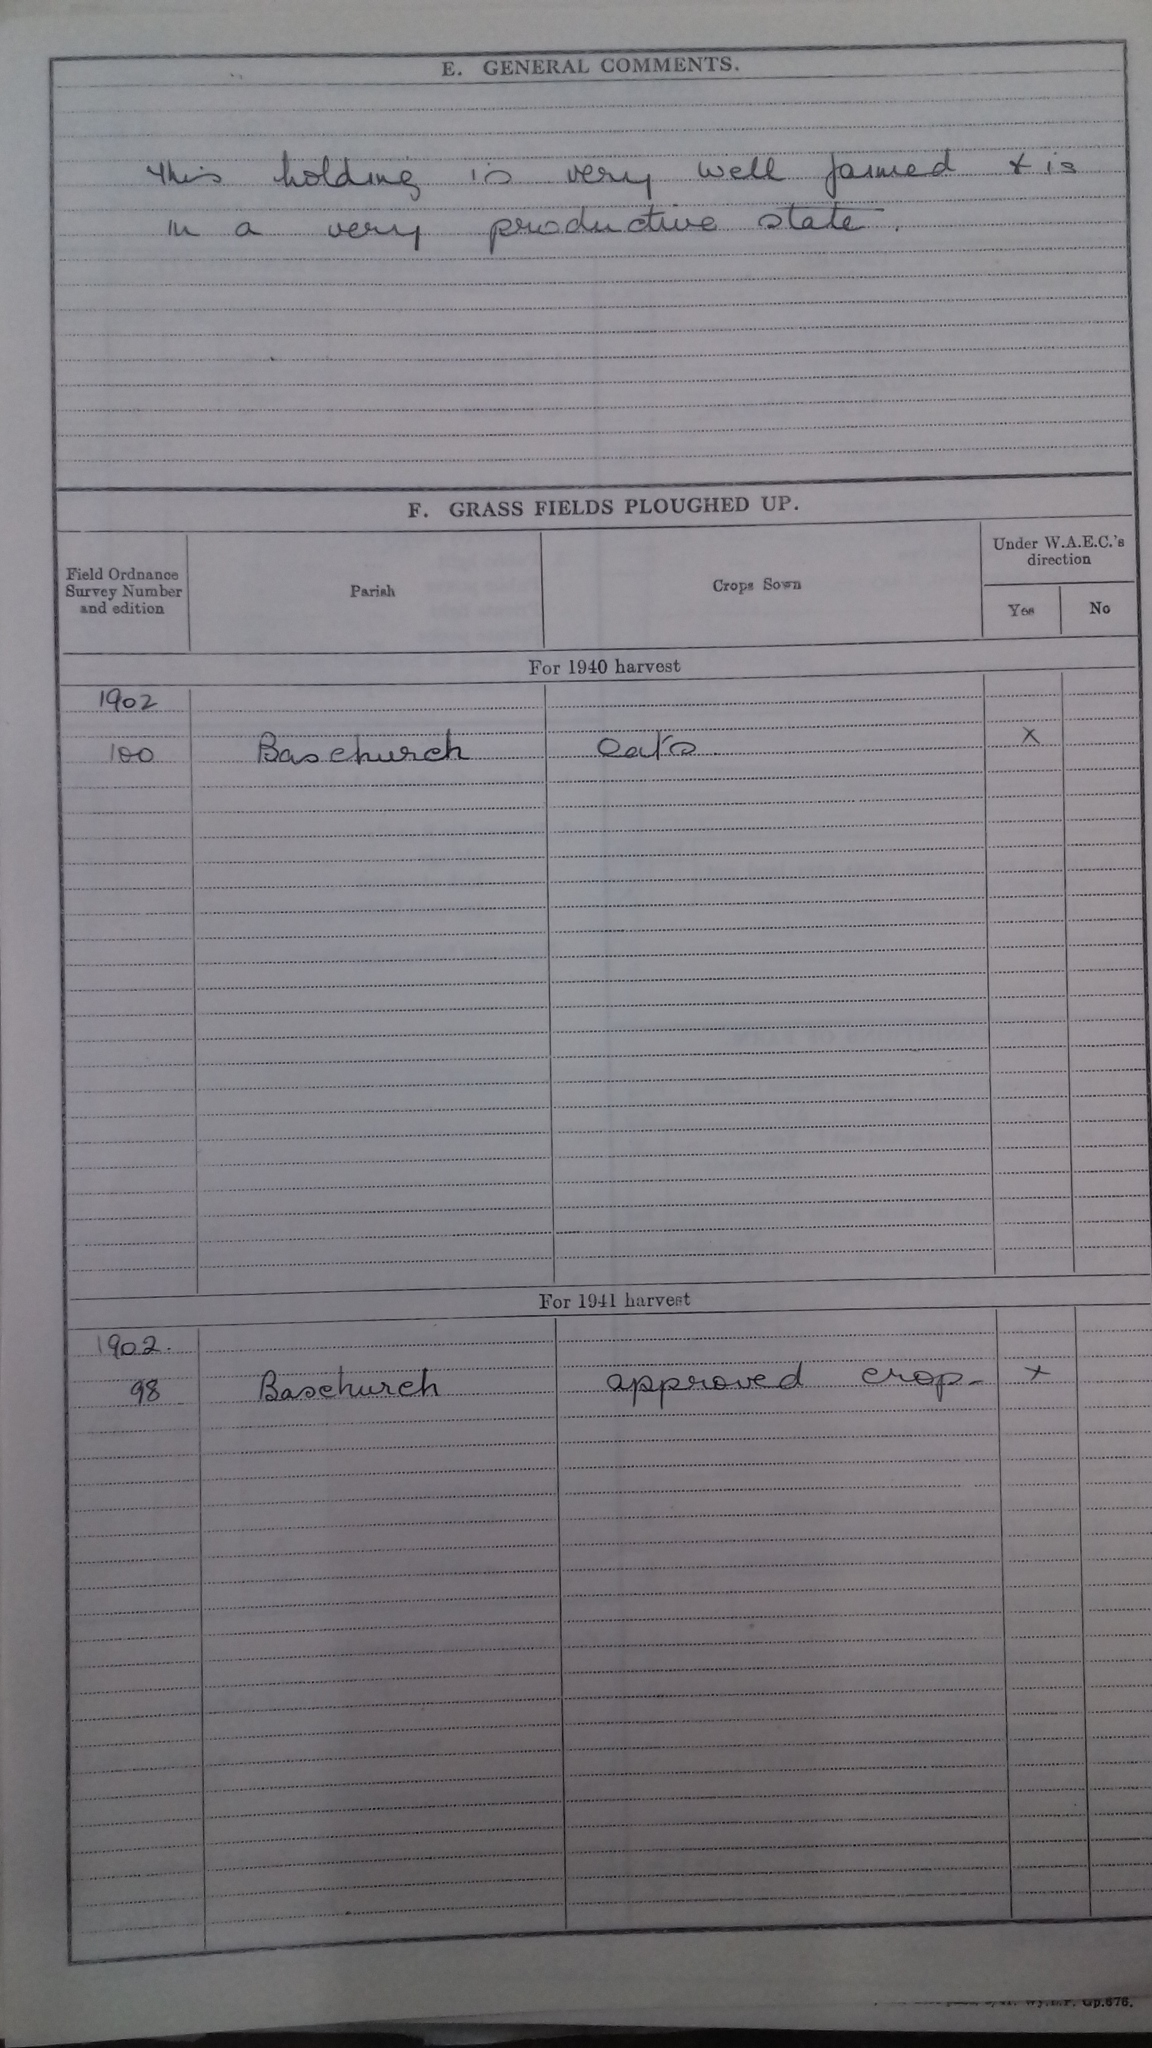 E. GENERAL COMMENTS.
This holding is very well farmed & is
in a very productive state.
F. GRASS FIELDS PLOUGHED UP.
Field Ordnance Survey Number and edition
Parish
Crops Sown
Under W.A.E.C.'s direction
Yes
No
For 1940 harvest
1902
100 Baschurch Oats. X
For 1941 harvest
1902.
98 Baschurch approved crop- X
Gp.676.